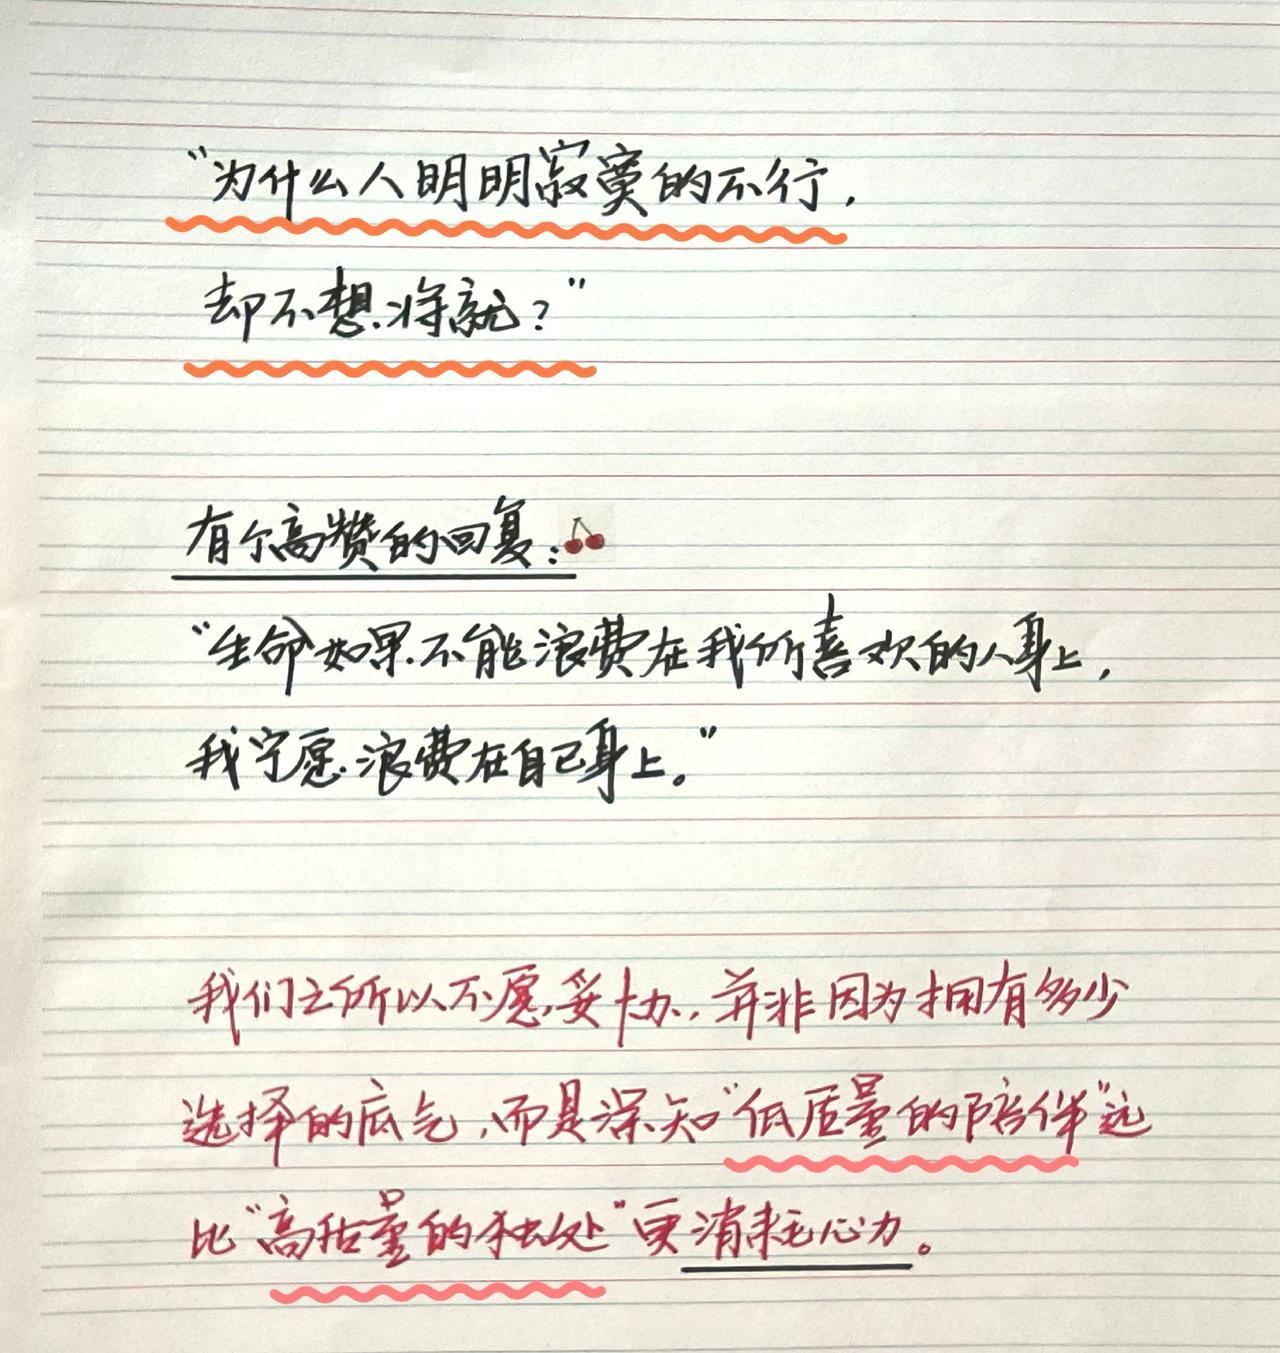 “为什么人明明寂寞的不行，
却不想将就？”
有个高赞的回复：
“生命如果不能浪费在我所喜欢的人身上，
我宁愿浪费在自己身上。”
我们之所以不愿妥协，并非因为拥有多少
选择的底气，而是深知“低质量的陪伴”远
比“高质量的独处”更消耗心力。